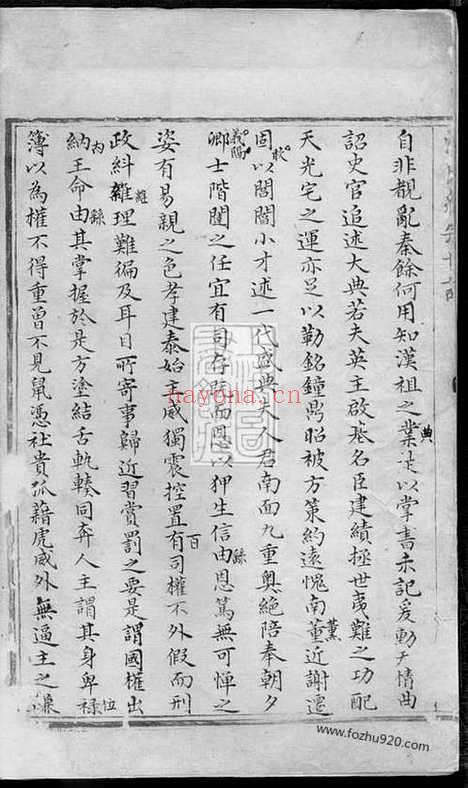 自非覩亂秦餘何用知漢祖之業是以掌書未記爰動天情曲
典
詔史官追述大典若夫英主啟基名臣建績拯世夷難之功配
天光宅之運亦足以勒銘鐘鼎昭被方策約遠愧南董近謝遷
董
固以閭閻小才述一代盛典夫人君南面九重奧絕陪奉朝夕
義陽
卿士階闥之任宜有司存既而恩以狎生信由恩篤無可憚之
姿有易親之色孝建泰始主威獨震控置有司權不外假而刑
百
政糾雜理難徧及耳目所寄事歸近習賞罰之要是謂國權出
納王命由其掌握於是方塗結舌軌輳同奔人主謂其身卑祿
內
位
簿以為權不得重曾不見鼠憑社貴狐藉虎威外無逼主之嫌
nayona.cn
www.fozhu920.com